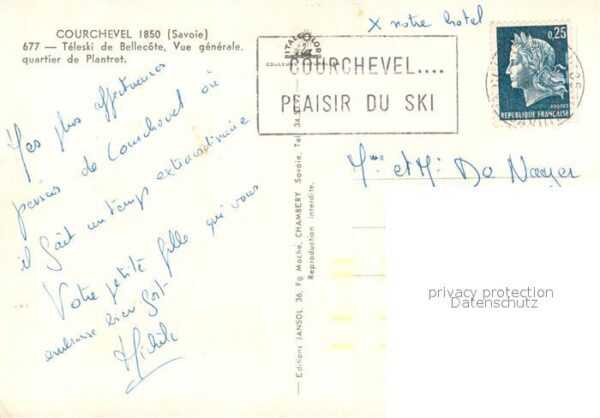 COURCHEVEL 1850 (Savoie)
677 — Téleski de Bellecôte, Vue générale.
quartier de Plantret.
X notre hôtel
ITALCOLOR
COURCHEVEL....
PLAISIR DU SKI
0,25
POSTES
REPUBLIQUE FRANÇAISE
Mes plus affectueuses
pensées de Courchevel où
il fait un temps extraordinaire
Votre petite fille qui vous
embrasse bien fort
Michèle
Mme et Mr De Naeyer
— Editions JANSOL 36, Fg Maché, CHAMBERY Savoie, Tel. 34.51-92 —
Reproduction interdite.
privacy protection
Datenschutz